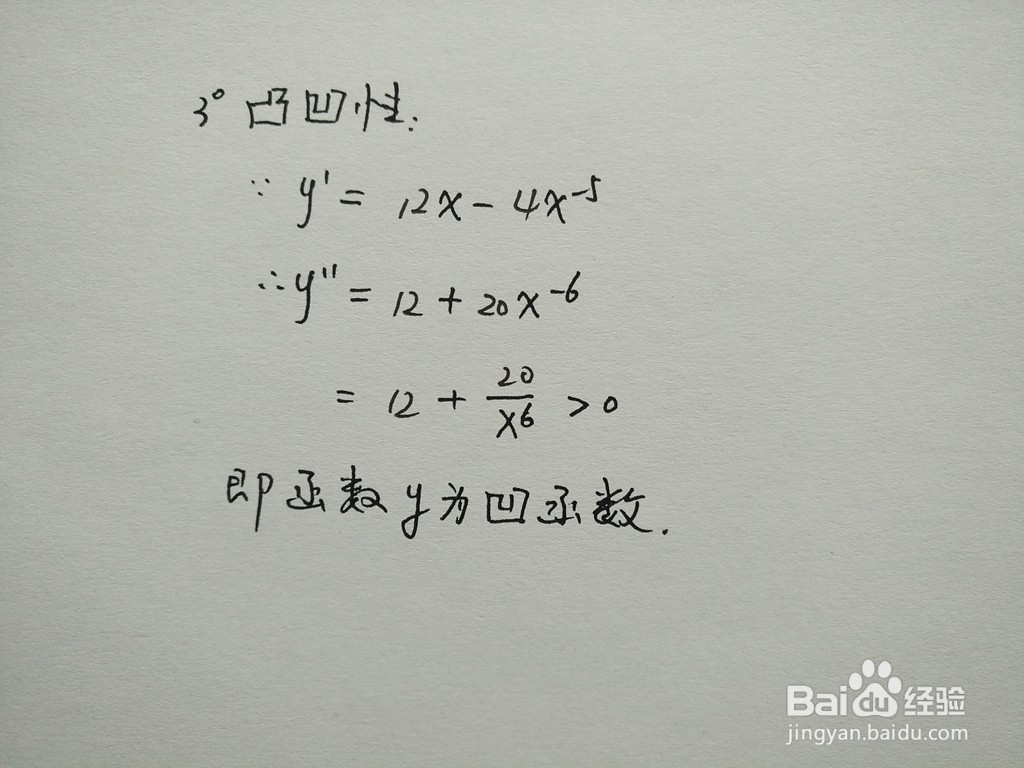 3° 凸凹性:
∵ y' = 12x - 4x⁻⁵
∴ y'' = 12 + 20x⁻⁶
= 12 + 20/x⁶ > 0
即函数y为凹函数.
Baidu 经验
jingyan.baidu.com